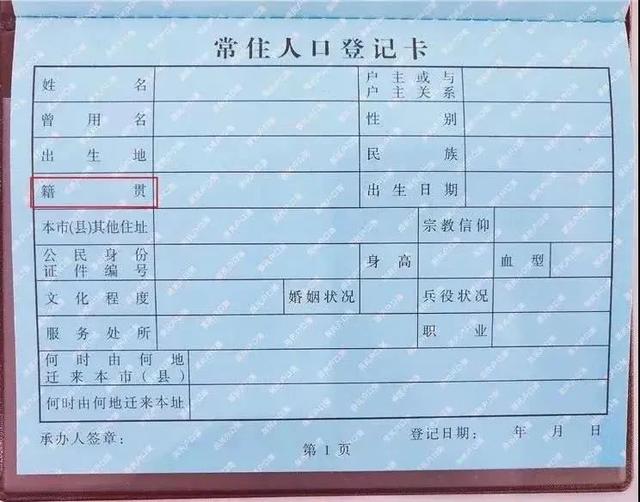 常住人口登记卡
姓名 户主或与户主关系
曾用名 性别
出生地 民族
籍贯 出生日期
本市(县)其他住址 宗教信仰
公民身份证件编号 身高 血型
文化程度 婚姻状况 兵役状况
服务处所 职业
何时由何地迁来本市(县)
何时由何地迁来本址
承办人签章： 登记日期： 年 月 日
第1页